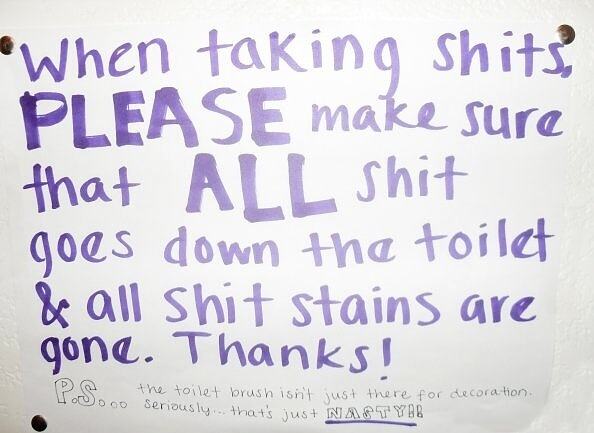 When taking shits,
PLEASE make sure
that ALL shit
goes down the toilet
& all shit stains are
gone. Thanks!
P.S... the toilet brush isn't just there for decoration.
seriously... that's just NASTY!!